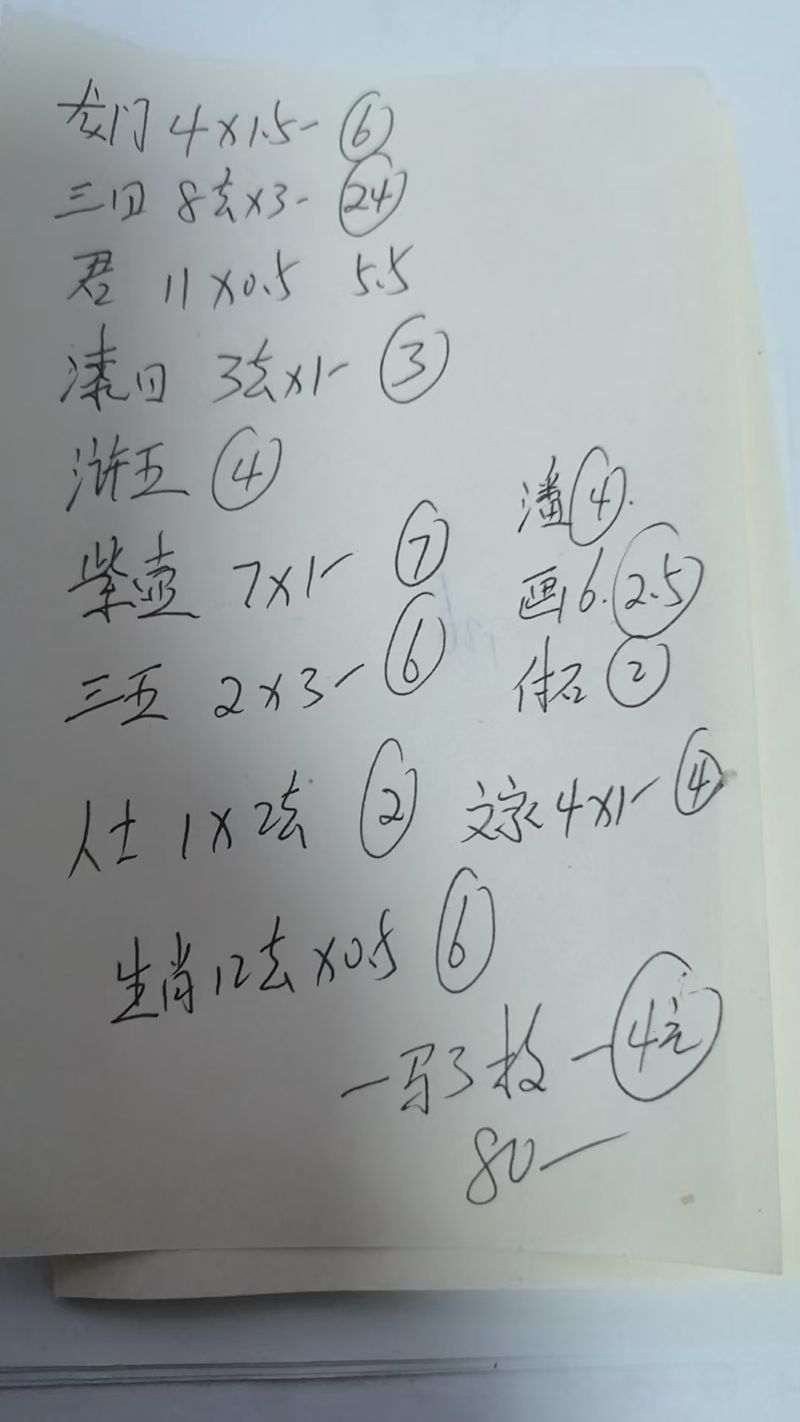 龙门 4×1.5- ⑥
三四 8套×3- ㉔
君 11×0.5 5.5
漆四 3套×1- ③
浒五 ④
潘 ④.
紫壶 7×1- ⑦
画16. 2.5
三五 2×3- ⑥
②
人士 1×2套 ②
4×1- ④
生肖12套×0.5 ⑥
一写3枚 - 4元
80-